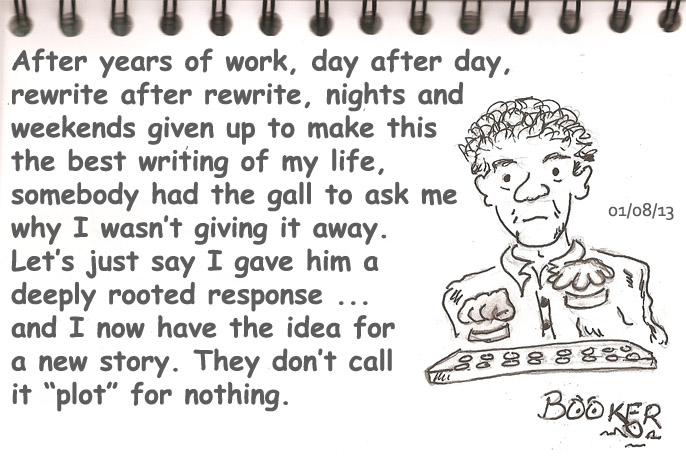 After years of work, day after day,
rewrite after rewrite, nights and
weekends given up to make this
the best writing of my life,
somebody had the gall to ask me
why I wasn't giving it away.
Let's just say I gave him a
deeply rooted response ...
and I now have the idea for
a new story. They don't call
it “plot” for nothing.
01/08/13
BOOKER